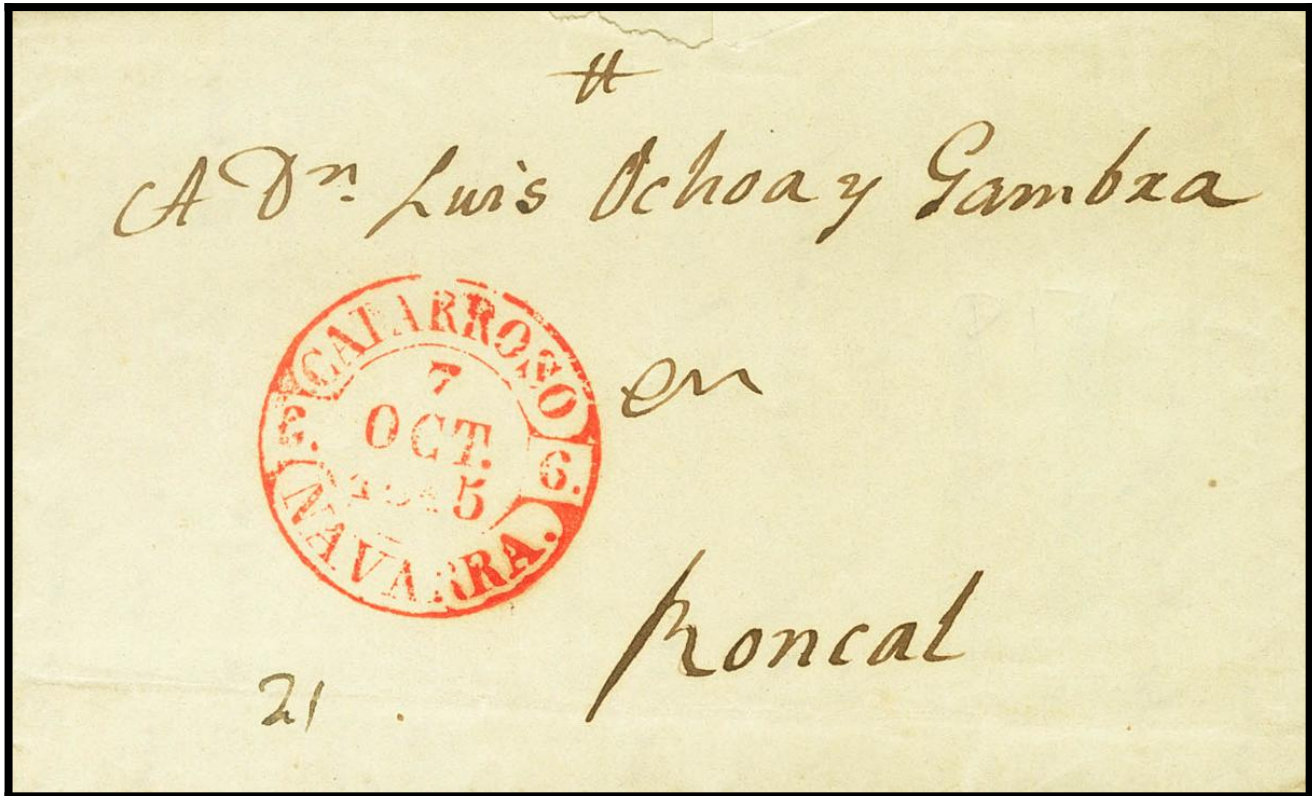 A Dn. Luis Ochoa y Gambra
CAPARROSO
7
OCT.
1845
6. 6.
NAVARRA.
en
Roncal
21